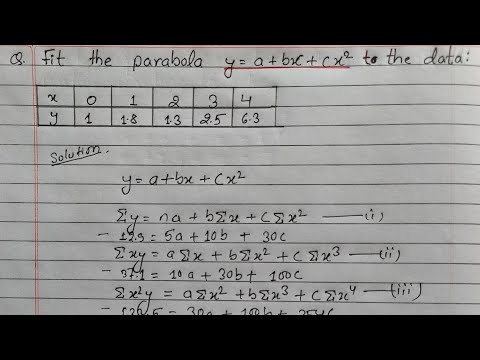 Q. Fit the parabola y = a + bx + cx² to the data:
x 0 1 2 3 4
y 1 1.8 1.3 2.5 6.3
Solution.
y = a + bx + cx²
Σy = na + bΣx + cΣx² —(i)
12.9 = 5a + 10b + 30c
Σxy = aΣx + bΣx² + cΣx³ —(ii)
37.1 = 10a + 30b + 100c
Σx²y = aΣx² + bΣx³ + cΣx⁴ —(iii)
= 30a + 100b + 354c